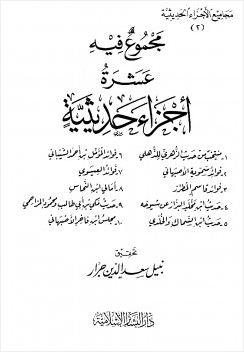 مجاميع الأجزاء الحديثية
(٢)
مجموع فيه
عشرة
أجزاء حديثية
١- منتخب من حديث الزهري للذهلي
٢- فوائد سمويه الأصبهاني
٣- فوائد قاسم المطرز
٤- حديث ابن مخلد البزاز عن شيوخه
٥- حديث ابن السماك والخلدي
٦- فوائد المؤمل بن أحمد الشيباني
٧- فوائد العيسوي
٨- أمالي ابن النحاس
٩- حديث مكي بن أبي طالب ومحمود المزاحمي
١٠- مجلس ابن فاخر الأصبهاني
تحقيق
نبيل سعد الدين جرار
دار البشائر الإسلامية